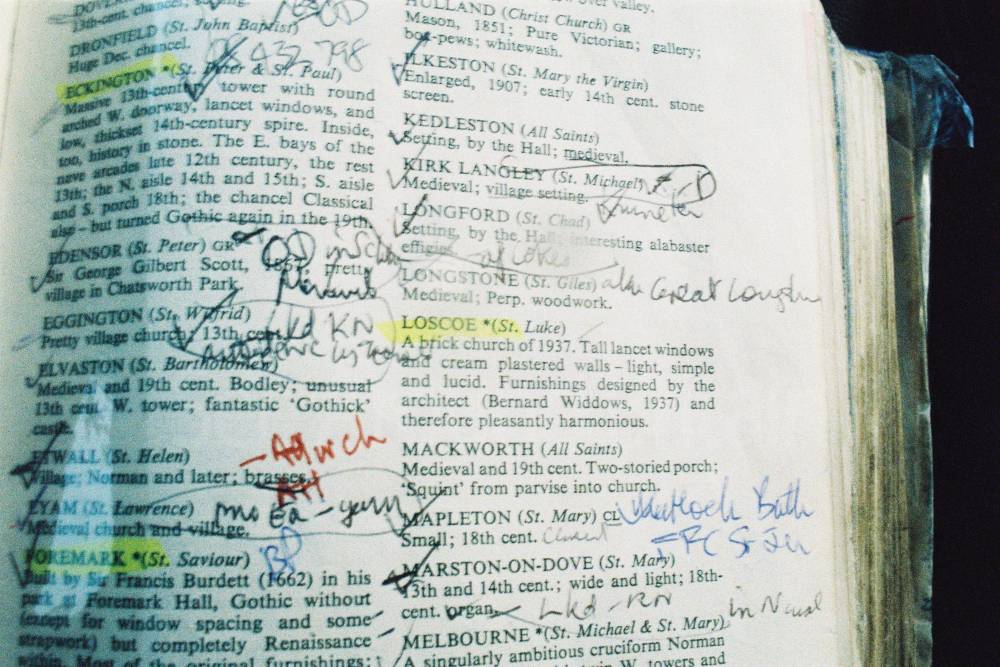 13th-cent. chancel;
DRONFIELD (St. John Baptist)
Huge Dec. chancel.
08432 798
ECKINGTON *(St. Peter & St. Paul)
Massive 13th-century tower with round
arched W. doorway, lancet windows, and
low, thickset 14th-century spire. Inside,
too, history in stone. The E. bays of the
nave arcades late 12th century, the rest
13th; the N. aisle 14th and 15th; S. aisle
and S. porch 18th; the chancel Classical
also – but turned Gothic again in the 19th.
EDENSOR (St. Peter) GR
Sir George Gilbert Scott, 1867; pretty
village in Chatsworth Park.
EGGINGTON (St. Wilfrid)
Pretty village church; 13th cent.
lkd KN
ELVASTON (St. Bartholomew)
Medieval and 19th cent. Bodley; unusual
13th cent. W. tower; fantastic 'Gothick'
castle.
ETWALL (St. Helen)
Village; Norman and later; brasses.
EYAM (St. Lawrence)
Medieval church and village.
BP
FOREMARK *(St. Saviour)
Built by Sir Francis Burdett (1662) in his
park at Foremark Hall, Gothic without
(except for window spacing and some
strapwork) but completely Renaissance
within. Most of the original furnishings;
valley.
HULLAND (Christ Church) GR
Mason, 1851; Pure Victorian; gallery;
box-pews; whitewash.
ILKESTON (St. Mary the Virgin)
Enlarged, 1907; early 14th cent. stone
screen.
KEDLESTON (All Saints)
Setting, by the Hall; medieval.
KIRK LANGLEY (St. Michael)
Medieval; village setting.
LONGFORD (St. Chad)
Setting, by the Hall; interesting alabaster
effigies
of Coke
LONGSTONE (St. Giles) also Great Longstone
Medieval; Perp. woodwork.
LOSCOE *(St. Luke)
A brick church of 1937. Tall lancet windows
and cream plastered walls – light, simple
and lucid. Furnishings designed by the
architect (Bernard Widdows, 1937) and
therefore pleasantly harmonious.
MACKWORTH (All Saints)
Medieval and 19th cent. Two-storied porch;
'Squint' from parvise into church.
MAPLETON (St. Mary) CL
Small; 18th cent.
Matlock Bath
MARSTON-ON-DOVE (St. Mary)
13th and 14th cent.; wide and light; 18th-
cent. organ.
Lkd - KN
MELBOURNE *(St. Michael & St. Mary)
A singularly ambitious cruciform Norman
W. towers and